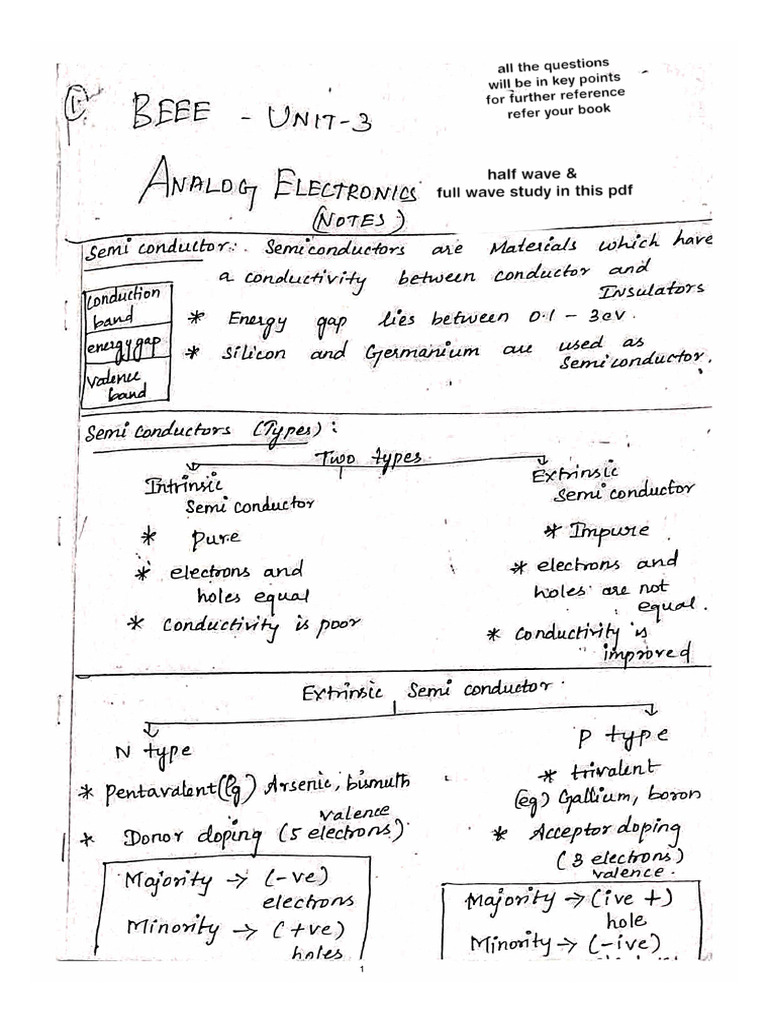 all the questions
will be in key points
for further reference
refer your book
1.
BEEE - UNIT-3
half wave &
full wave study in this pdf
ANALOG ELECTRONICS
(NOTES)
Semi conductor:. Semiconductors are Materials which have
a conductivity between conductor and
Insulators
conduction
band
energy gap
valence
band
* Energy gap lies between 0.1 - 3ev.
* Silicon and Germanium are used as
Semiconductor.
Semi conductors (Types):
Two types
Intrinsic
Semi conductor
* pure
* electrons and
holes equal
* conductivity is poor
Extrinsic
Semi conductor
* Impure
* electrons and
holes are not
equal.
* conductivity is
improved
Extrinsic Semi conductor
N type
* pentavalent (Eg) Arsenic, bismuth
valence
* Donor doping (5 electrons)
Majority → (-ve)
electrons
Minority → (+ve)
holes
P type
* trivalent
(eg) Gallium, boron
* Acceptor doping
(3 electrons)
valence.
Majority → (ive +)
hole
Minority → (-ive)
1